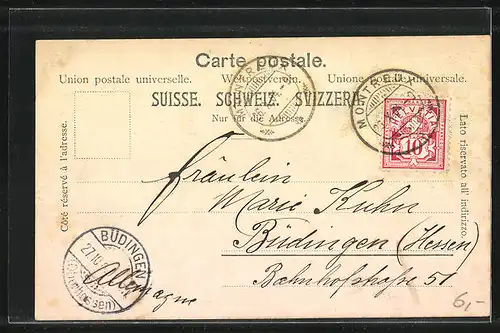 Carte postale.
Union postale universelle. Weltpostverein. Unione postale universale.
SUISSE. SCHWEIZ. SVIZZERA.
Nur für die Adresse.
Côté réservé à l'adresse.
Lato riservato all' indirizzo.
MONTREUX
MONTREUX
HELVETIA
10
Fräulein
Marie Kuhn
Büdingen (Hessen)
Bahnhofstraße 51
Allemagne
BÜDINGEN
27.10
(Oberhessen)
6,-